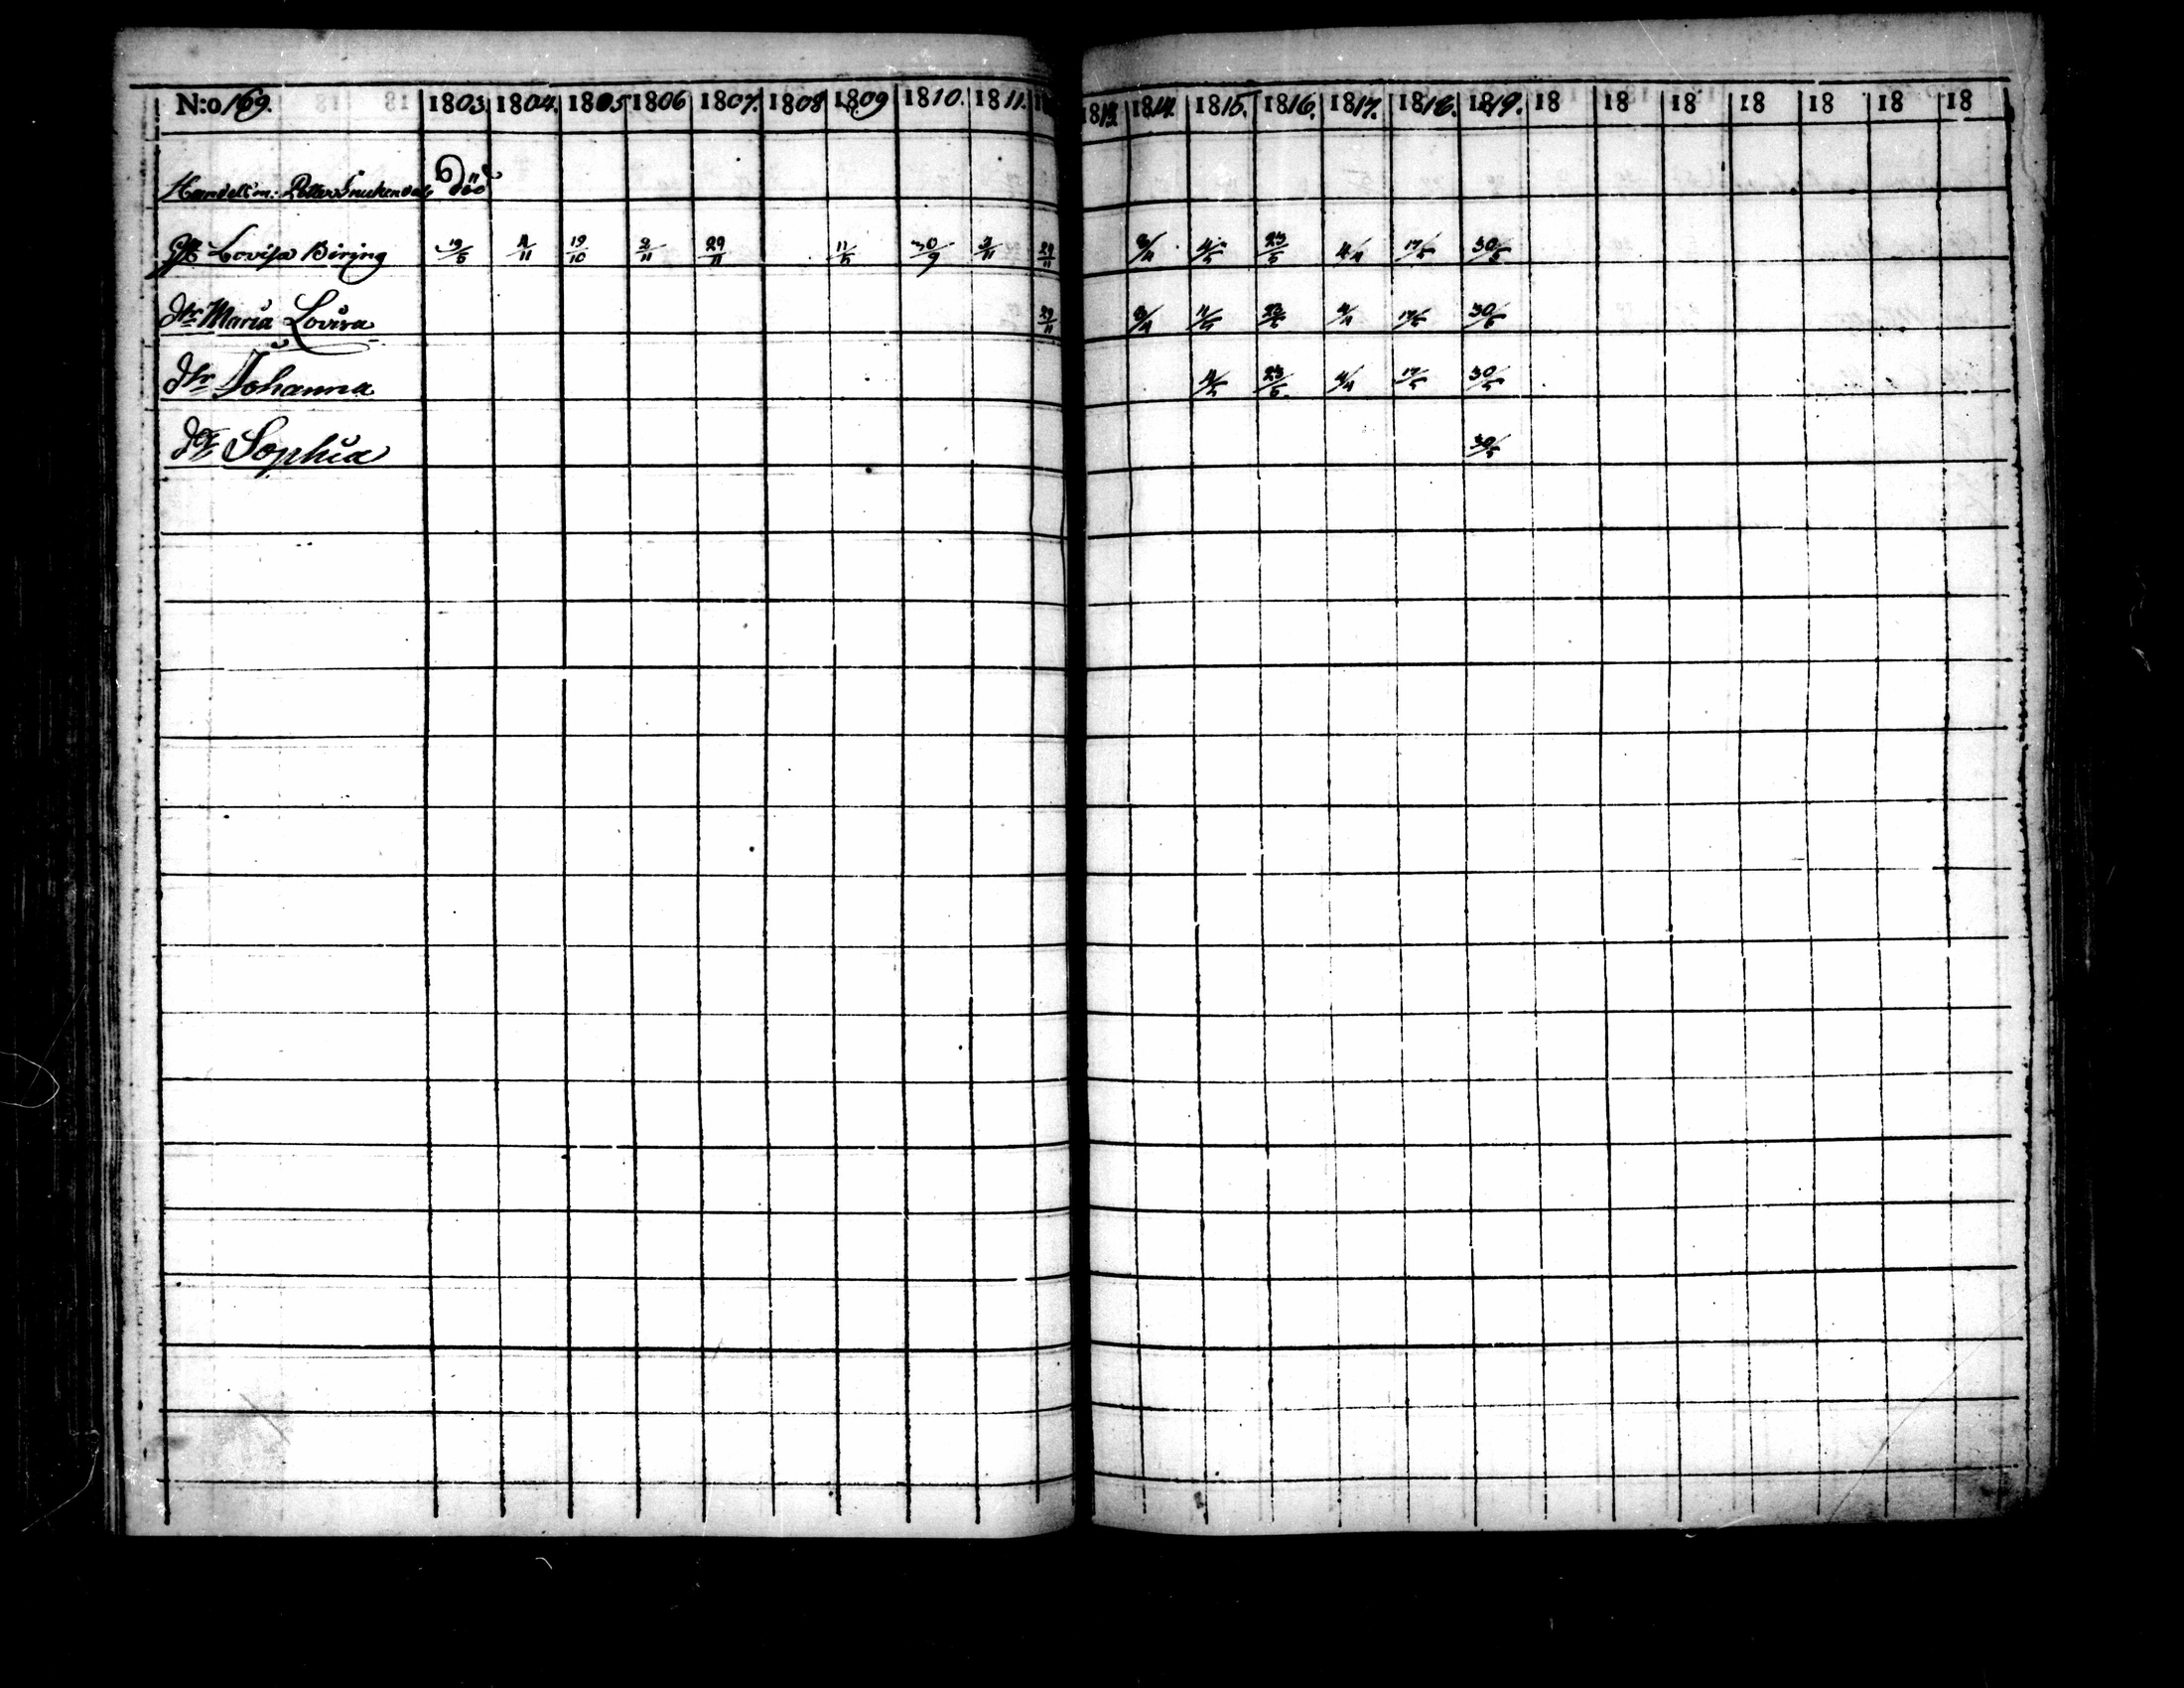 N:o 169. 1803 1804. 1805 1806 1807. 1808 1809 1810. 1811. 1813. 1814. 1815. 1816. 1817. 1818. 1819. 18 18 18 18 18 18 18
Handelsm: Petter död
Lovisa Biring 19/5 4/11 19/10 2/11 29/11 11/5 30/9 3/11 29/11 4/5 23/5 4/4 17/5 30/5
dtr Maria Lovisa 29/11 4/4 17/5 30/5
dtr Johanna 4/5 23/5 4/4 17/5 30/5
dtr Sophia 30/5